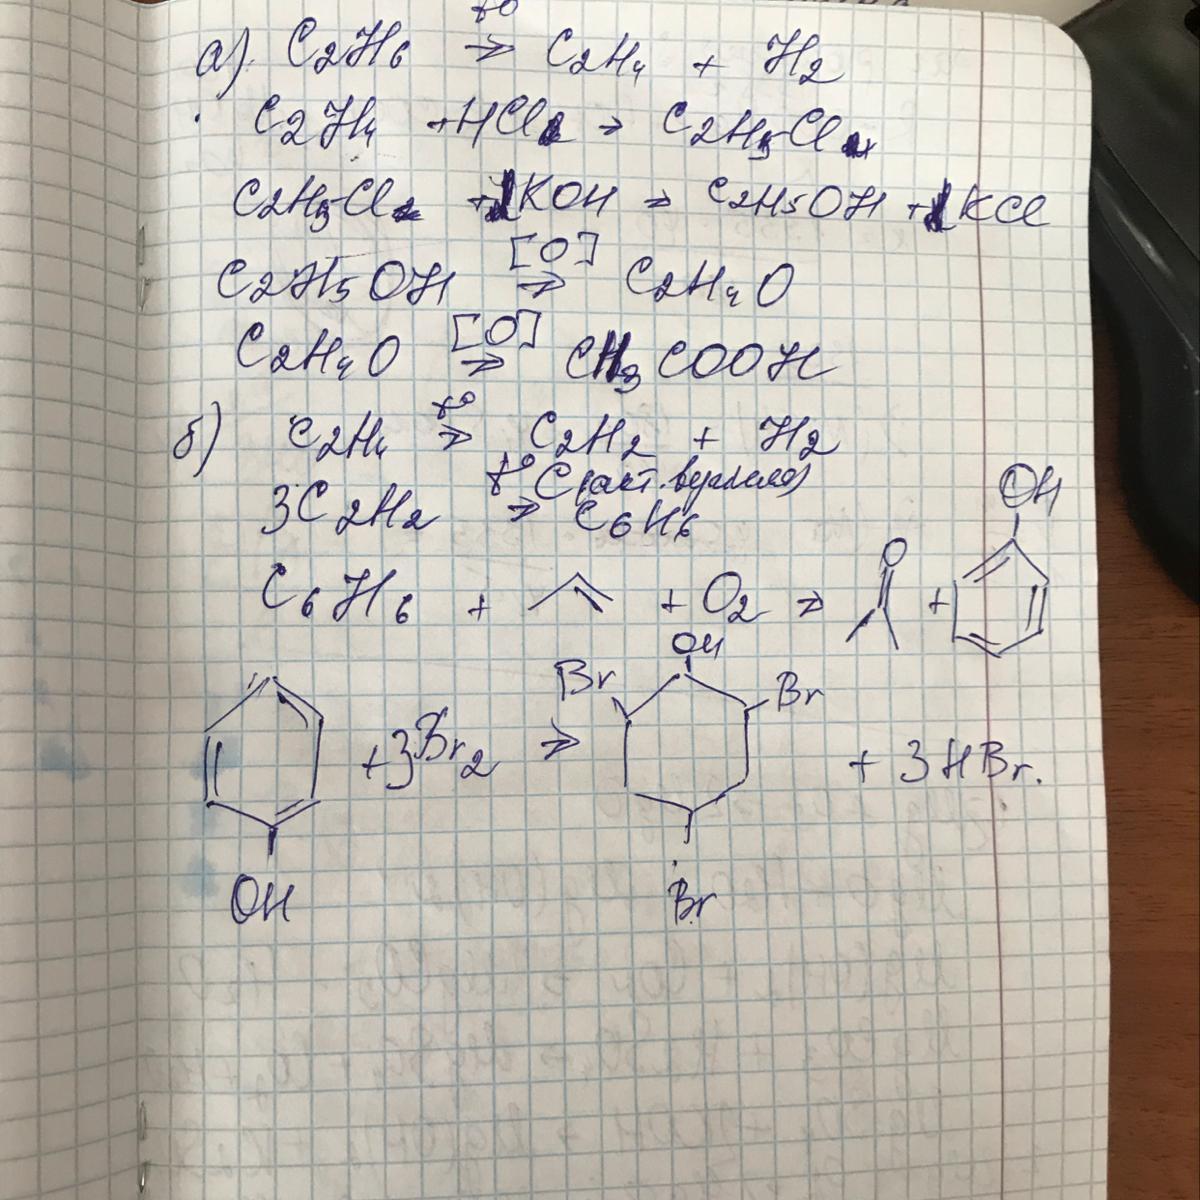 а). C2H6 t° → C2H4 + H2
C2H4 + HCl → C2H5Cl
C2H5Cl + KOH → C2H5OH + KCl
C2H5OH [O] → C2H4O
C2H4O [O] → CH3COOH
б) C2H4 t° → C2H2 + H2
3C2H2 t° C(акт. → C6H6
C6H6 + + O2 → O + OH
OH + 3Br2 → Br OH Br Br + 3HBr.